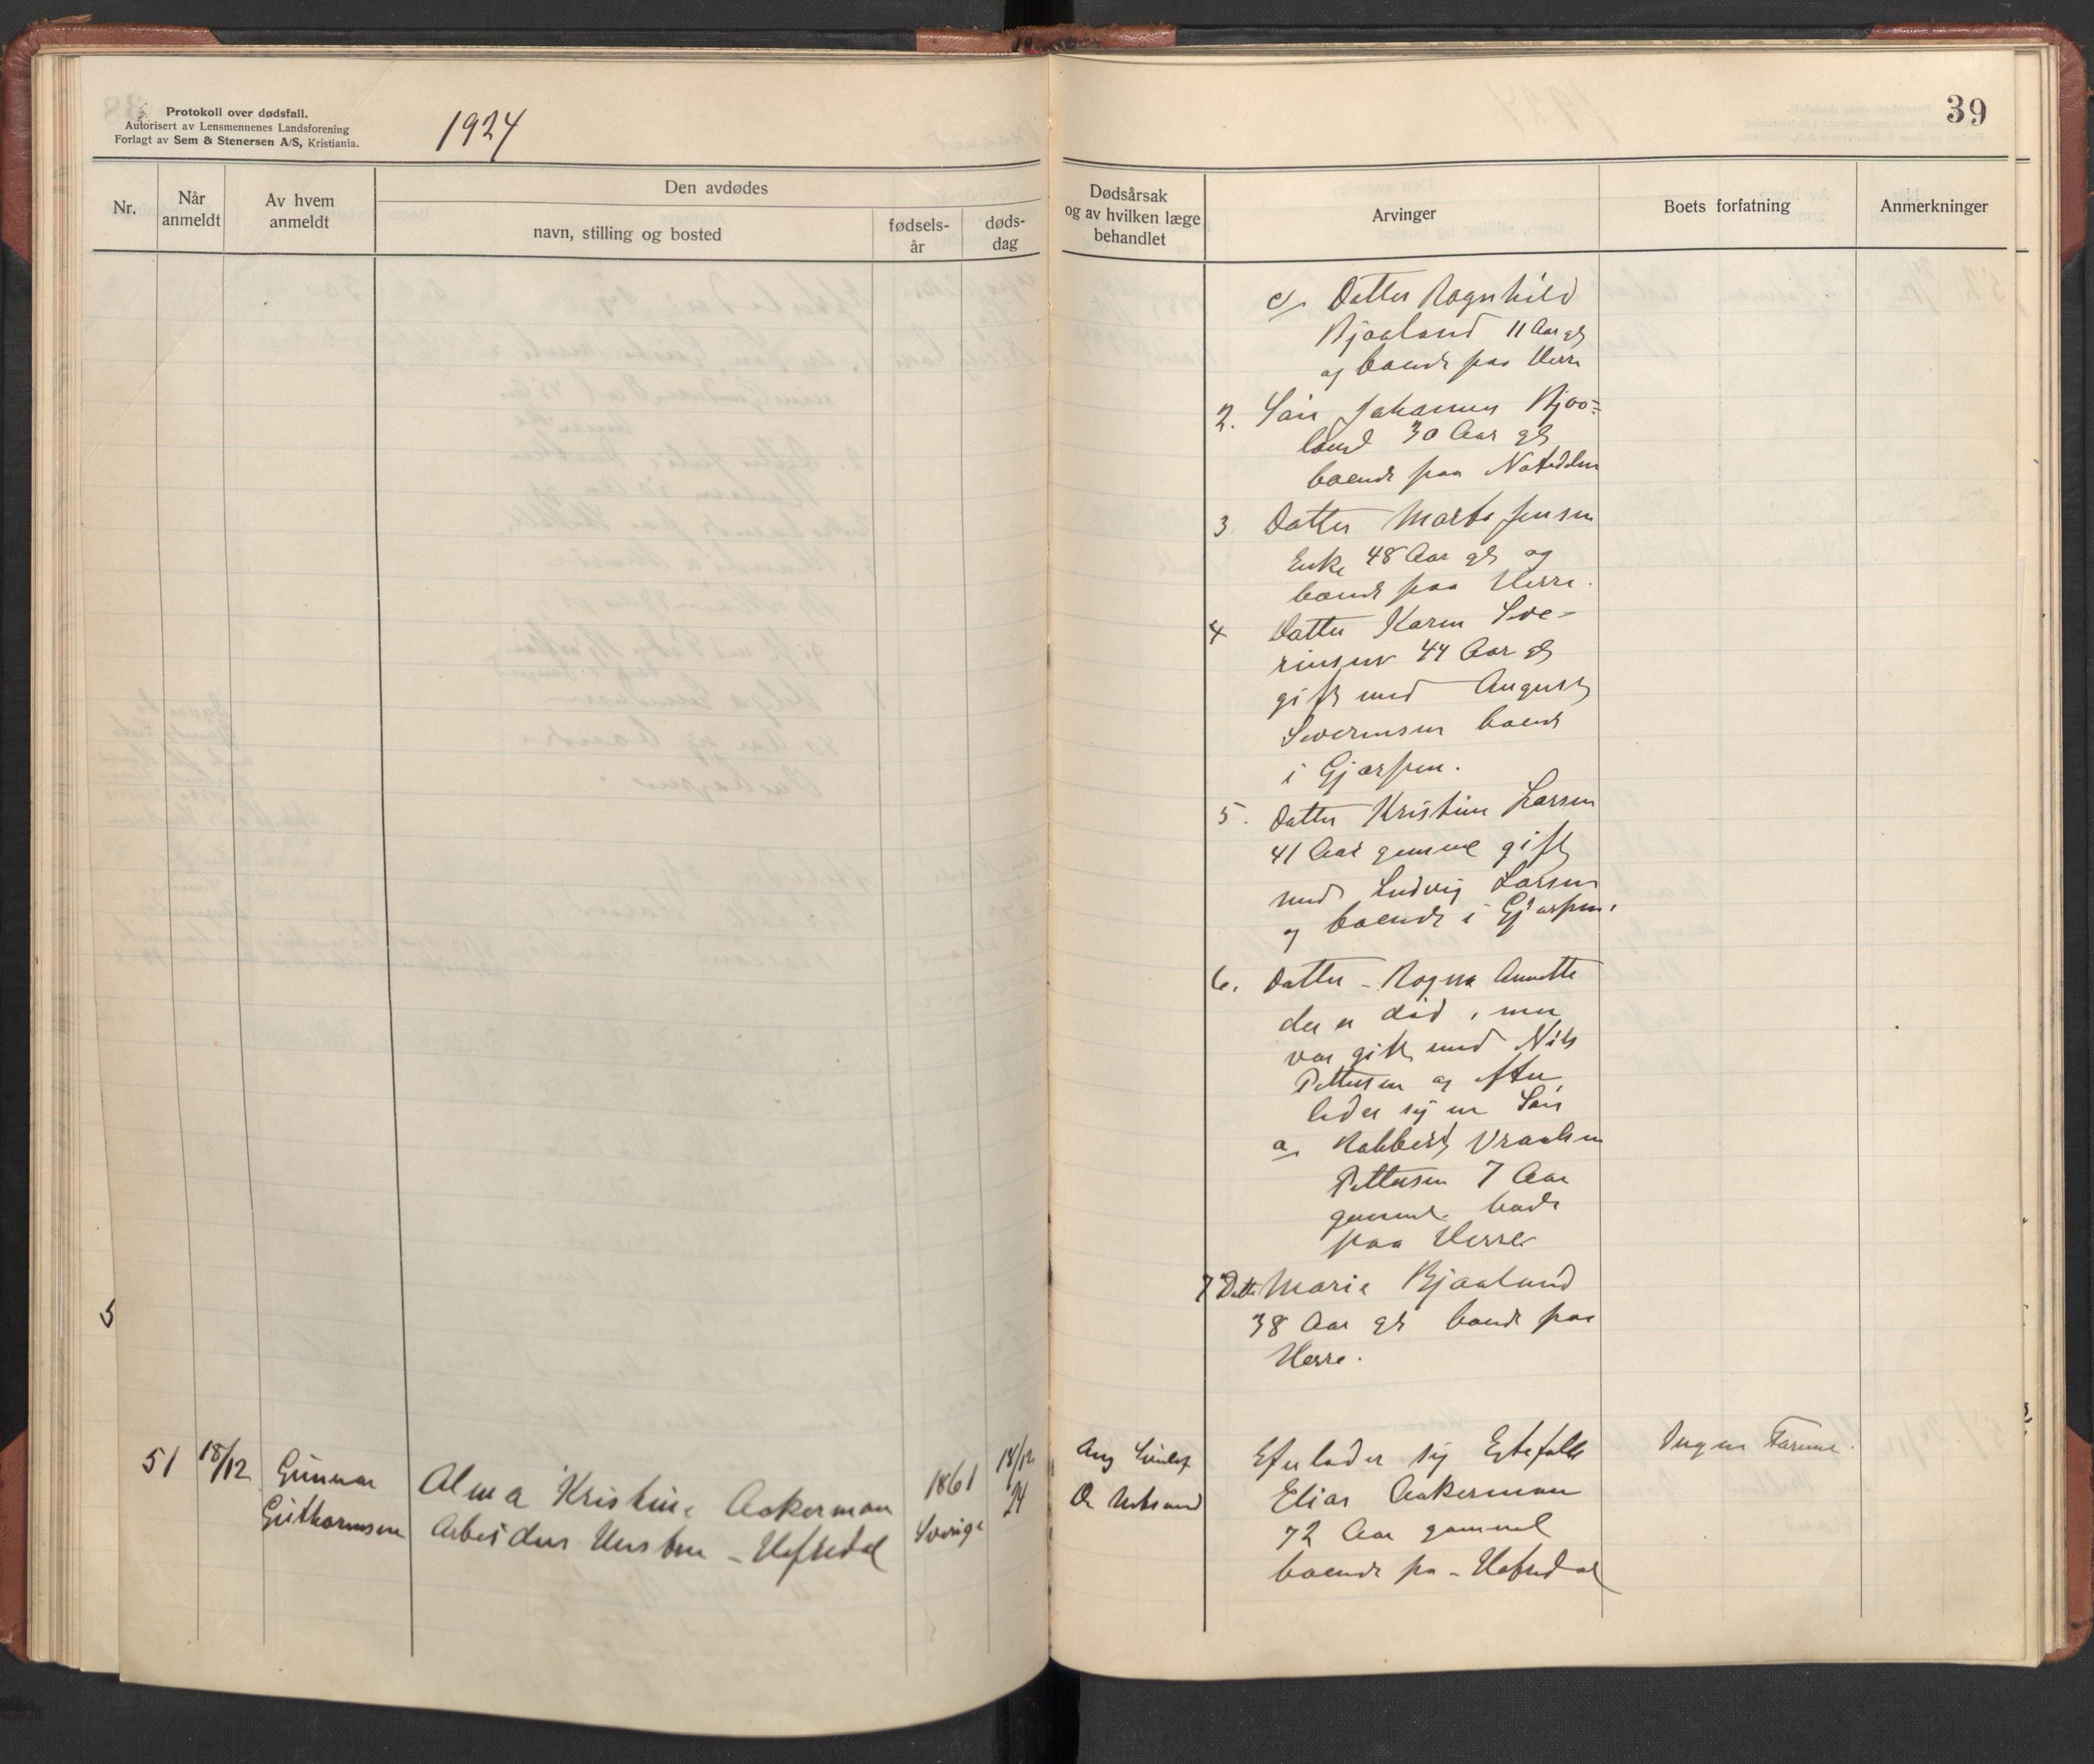 Protokoll over dødsfall.
Autorisert av Lensmennenes Landsforening
Forlagt av Sem & Stenersen A/S, Kristiania.
1924
39
Nr.
Når anmeldt
Av hvem anmeldt
Den avdødes
navn, stilling og bosted
fødsels-år
døds-dag
Dødsårsak og av hvilken læge behandlet
Arvinger
Boets forfatning
Anmerkninger
c, Datter Ragnhild
Bjaaland 11 Aar gl
og boende paa Herre
2. Søn Johannes Bjaa=
land 30 Aar gl
boende paa Notodden
3 Datter Marte Jensen
Enke 48 Aar gl og
boende paa Herre.
4 Datter Karen Seve-
rinsen 44 Aar gl
gift med August
Severinsen boende
i Gjerpen.
5. Datter Kristine Larsen
41 Aar gammel gift
med Ludvig Larsen
og boende i Gjerpen.
6. Datter - Ragna Annette
der er død, men
var gift med Nils
Pettersen og efter
lader sig en Søn
a, Robbert Vraalsen
Pettersen 7 Aar
gammel boende
paa Herre
7 Datter Marie Bjaaland
38 Aar gl boende paa
Herre.
5
51 18/12 Gunnar Alma Kristine Aakerman 1861 14/12
Guthormsen Arbeiders Hustru - Hafredal Sverige 24
Efterlader sig Egtefælle
Elias Aakerman
72 Aar gammel
boende pa - Hafredal
Ingen Formue.